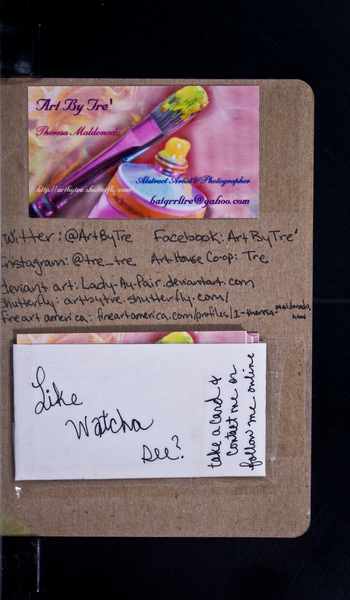 Art By Tre'
Theresa Maldonado
Abstract Artist & Photographer
http://artbytre.shutterfly.com
batgrrltre@yahoo.com
Twitter: @ArtByTre Facebook: Art By Tre'
Instagram: @tre_tre Art House Co-op: Tre
deviant art: Lady-Ay-Pair.deviantart.com
Shutterfly: artbytre.shutterfly.com/
fine art america: fineartamerica.com/profiles/2-theresa-maldonado.html
Like
Watcha
see?
take a card &
contact me or
follow me online